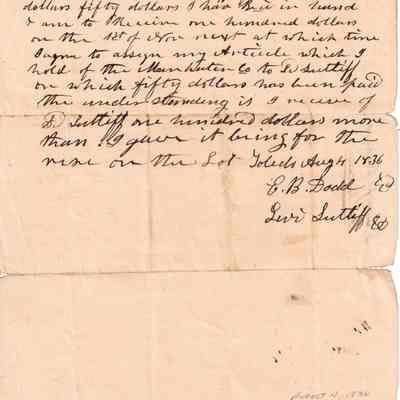 dollars fifty dollars I have Rec in hand
& am to Receive one hundred dollars
on the 1st of Nov next at which time
I agree to assign my Article which I
hold of the Manhatan Co to L Sutliff
on which fifty dollars has been paid
the under standing is I receive of
L Sutliff one hundred dollars more
than I gave it being for the
rise on the Lot Toledo Aug 4 1836
E. B. Dodd
Levi Sutliff
August 4, 1836